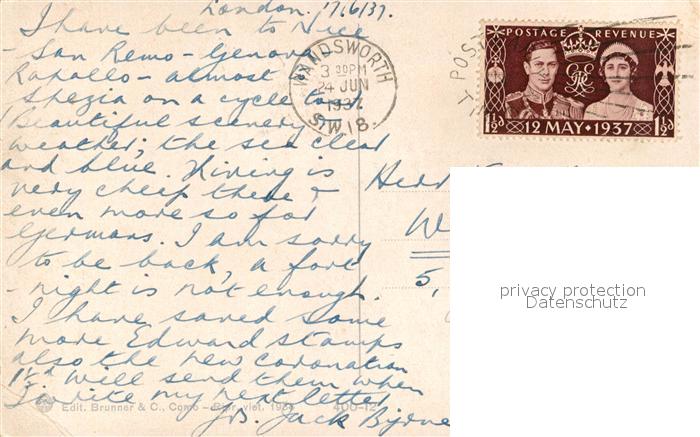 London. 17/6/37.
I have been to Nice
- San Remo - Genova
Rapallo - almost
Spezia on a cycle
Beautiful scenery
weather, the sea clear
and blue. Living is
very cheap there &
even more so for
Germans. I am sorry
to be back, a fort
- night is not enough.
I have saved some
more Edward stamps
also the new coronation
1½d will send them when
I write my next letter
Jack Byrne
Edit. Brunner & C., Como - 400-12
WANDSWORTH
3 30PM
24 JUN
1937
S.W.18.
POSTAGE REVENUE
1½D 12 MAY • 1937 1½D
Herr
W
5,
privacy protection
Datenschutz